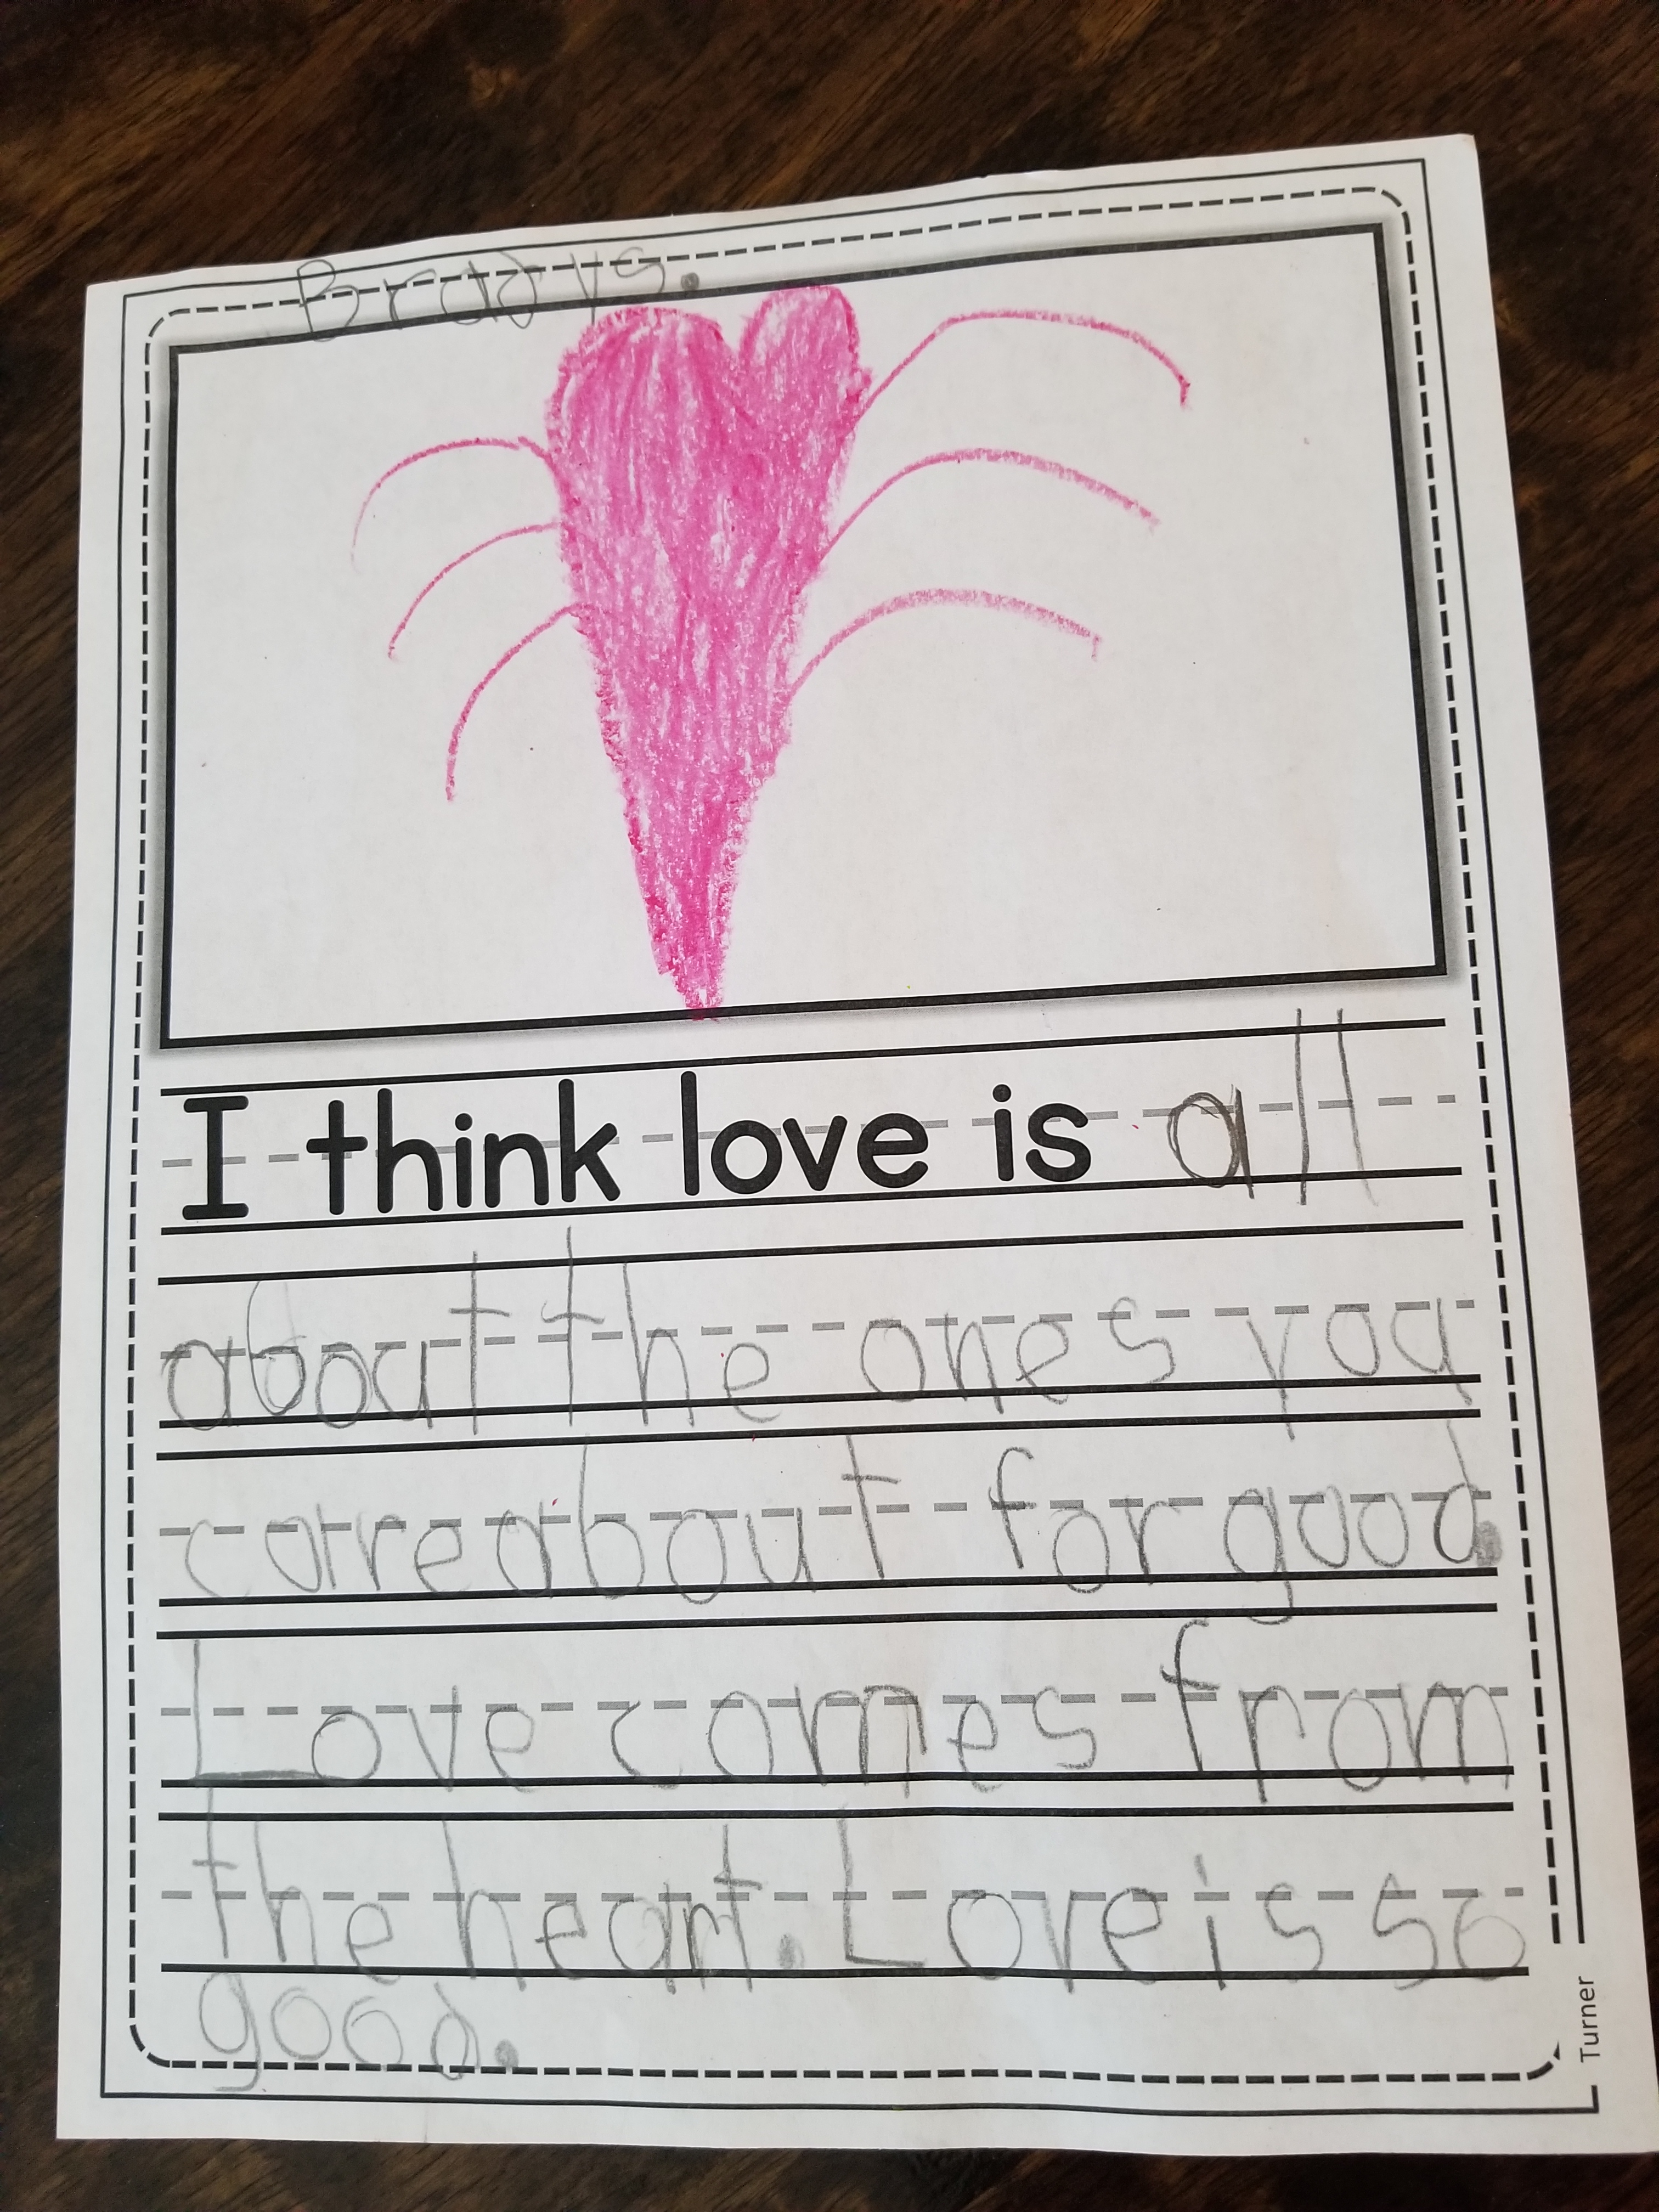 Brady s.
I think love is all
about the ones you
care about for good.
Love comes from
the heart. Love is so
good.
Turner